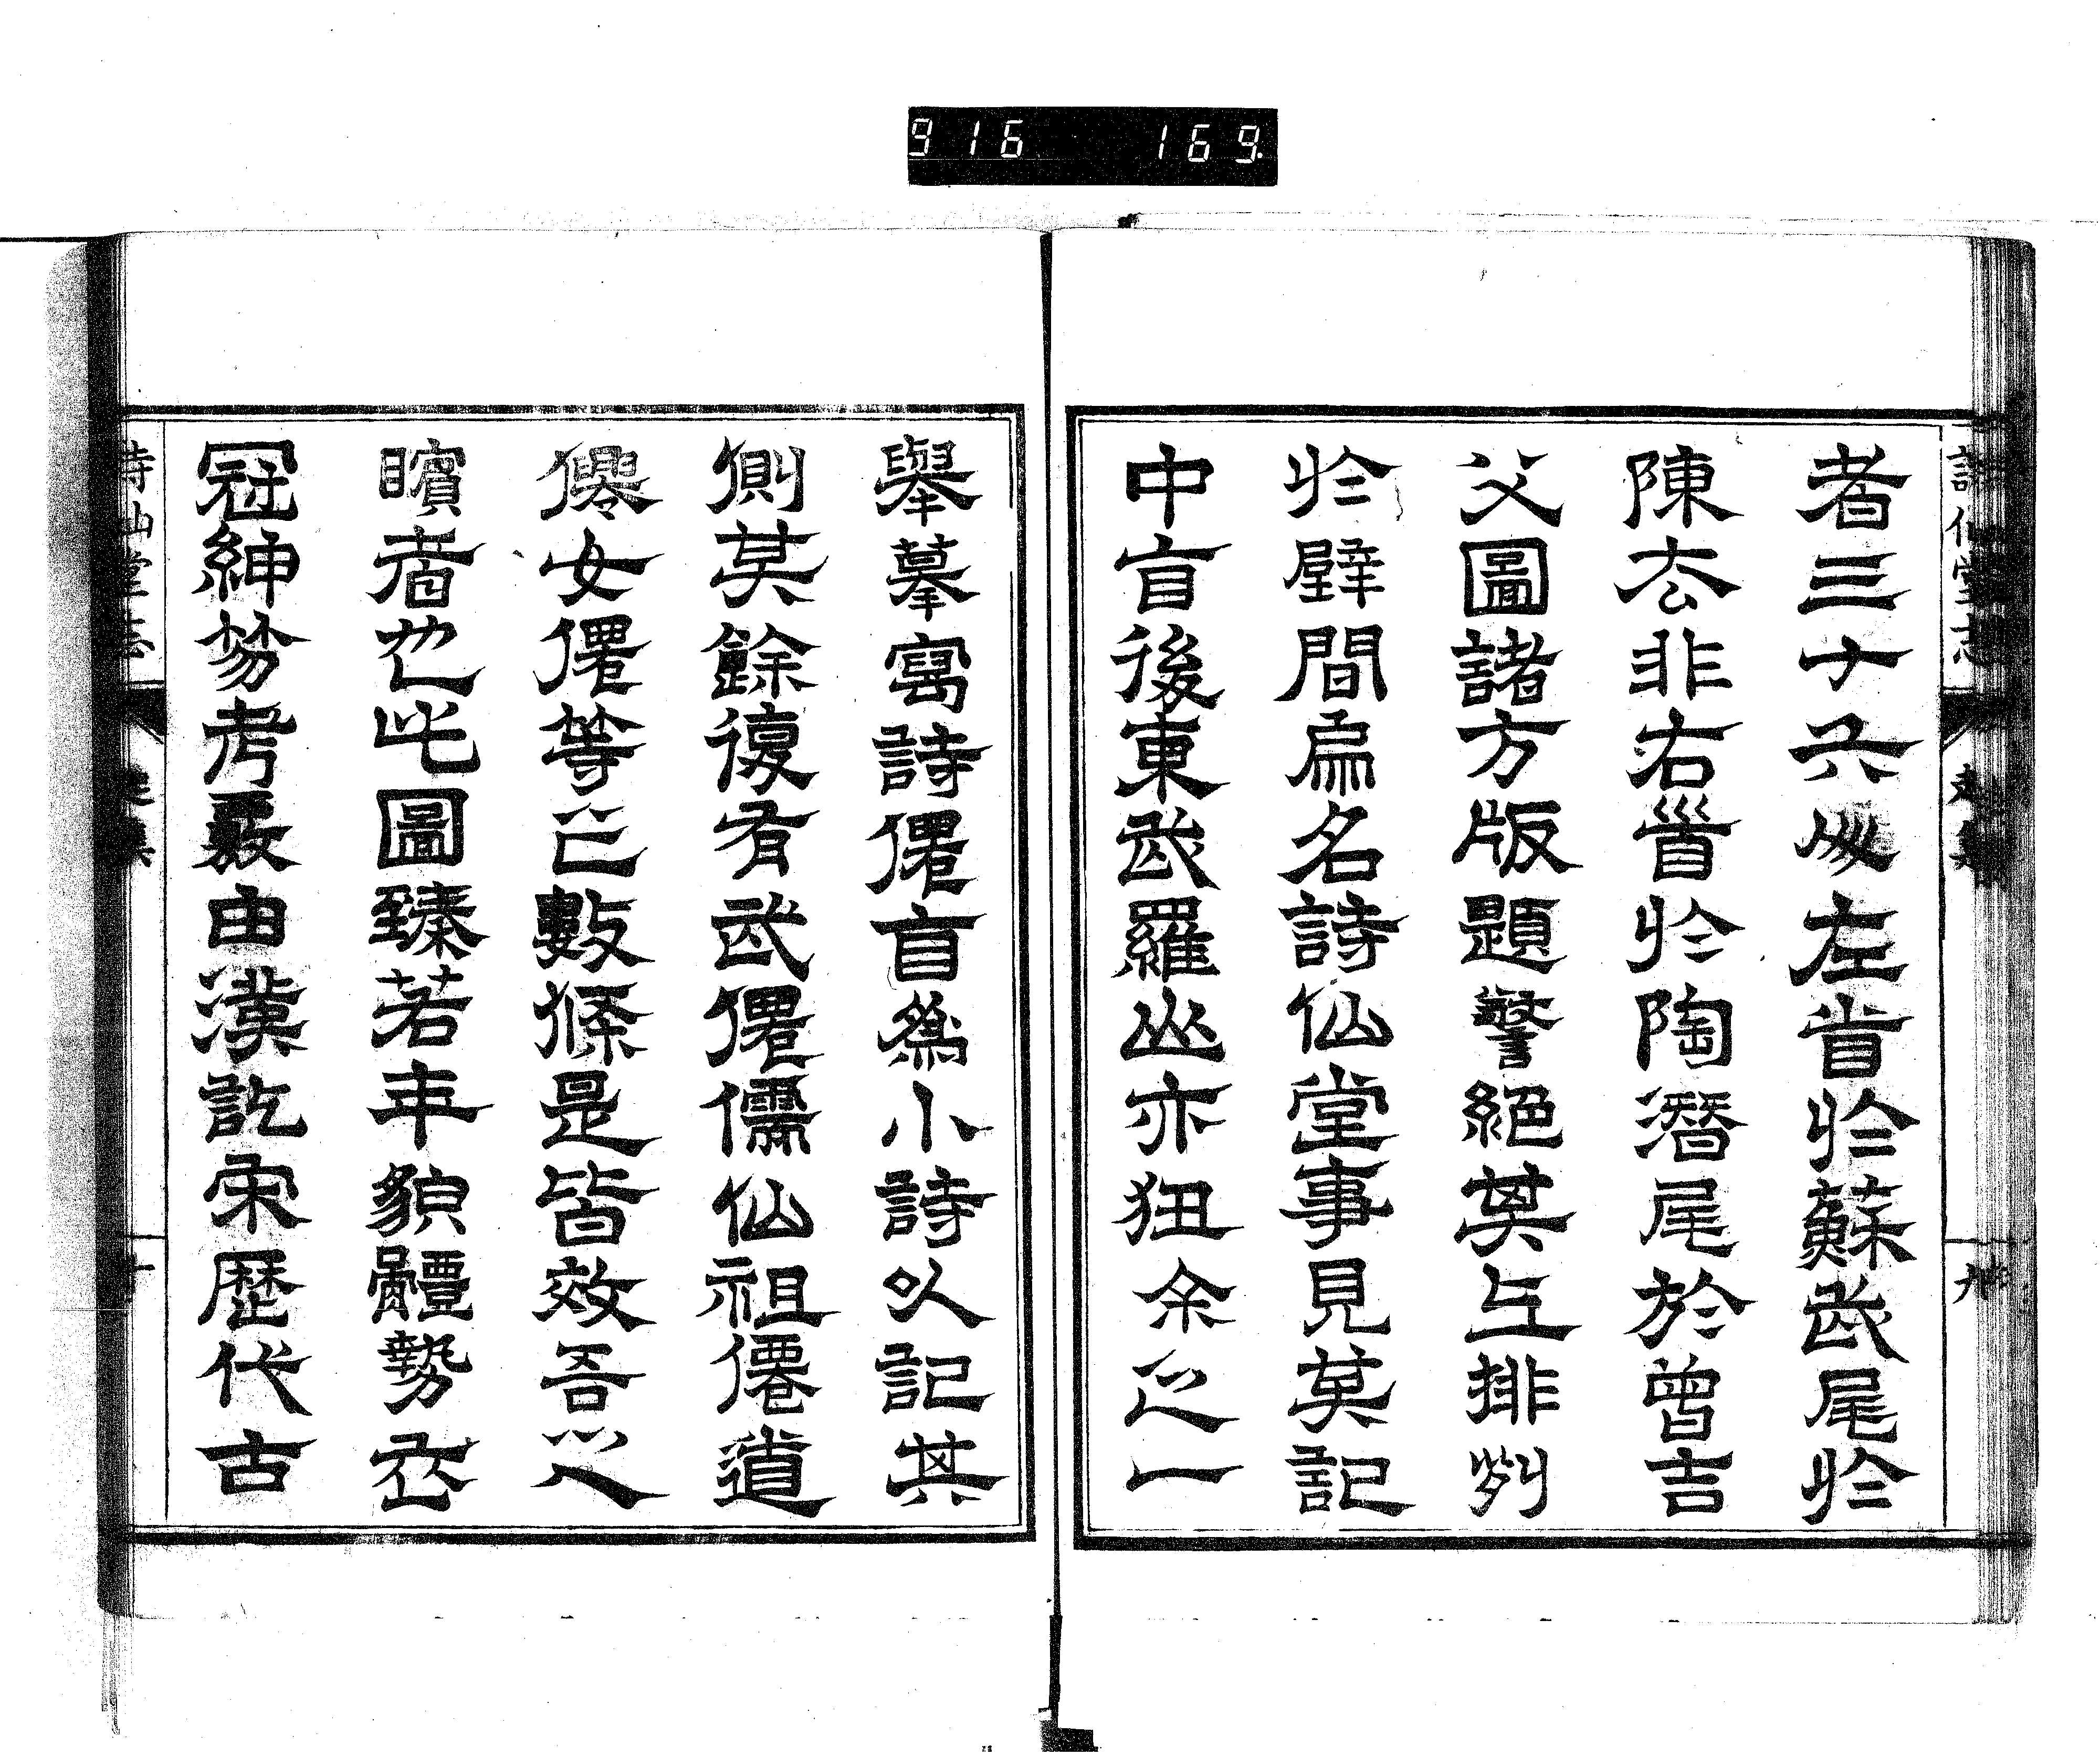 詩仙堂志 九
者三十六左首於蘇武尾於
陳去非右首於陶潛尾於曾吉
父圖諸方版題警絕其上排列
於壁間扁名詩仙堂事見其記
中後東武羅山亦狃余之一
擧摹寫詩僊為小詩以記其
側其餘復有武僊儒仙祖僊道
僊女僊等亡數條是皆效吾之
矉者也此圖臻若年貌體勢衣
冠紳笏考覈由漢訖宋歷代古
詩仙堂志 十
916 169